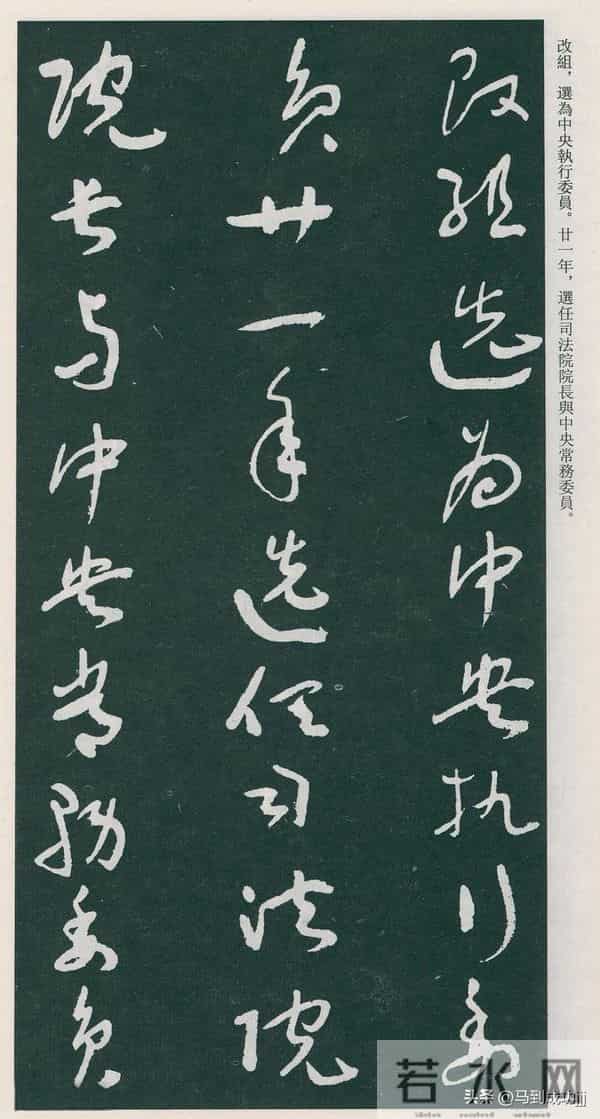 改組，選為中央執行委員。廿一年，選任司法院院長與中央常務委員。
改組選為中央執行委
員廿一年選任司法院
院長與中央常務委員
若水网
头条@马到成功jjj